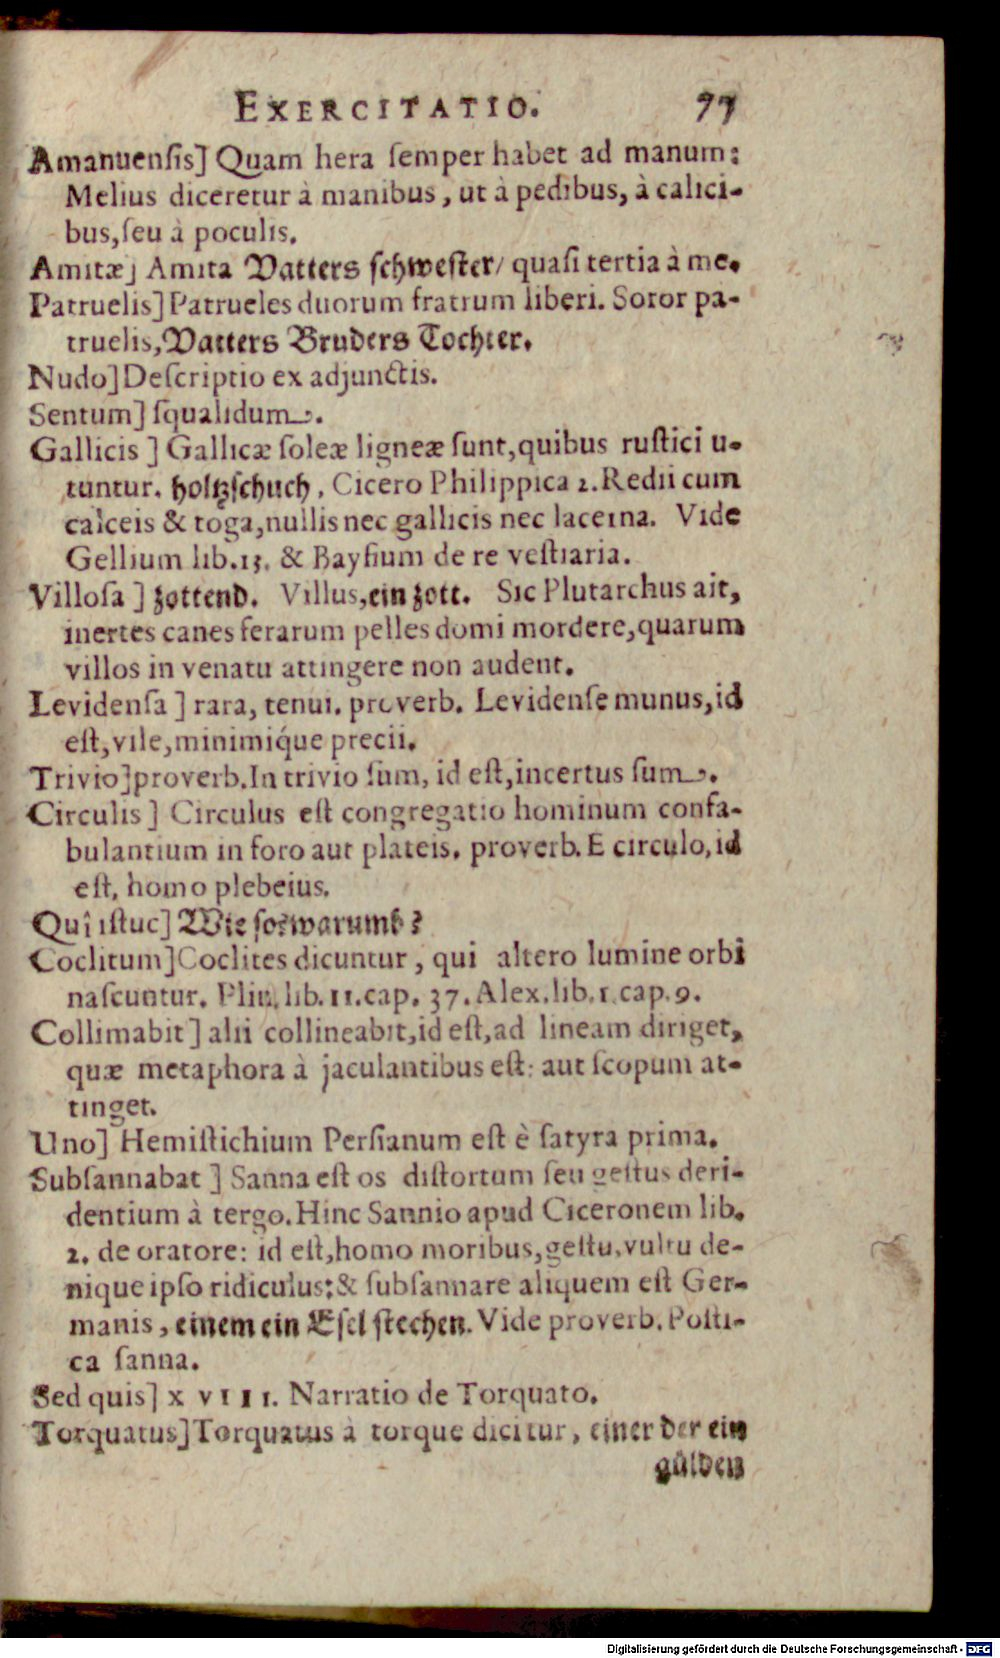 EXERCITATIO. 77
Amanuensis] Quam hera semper habet ad manum:
Melius diceretur à manibus, ut à pedibus, à calici-
bus, seu à poculis.
Amitæ] Amita Vatters schwester/ quasi tertia à me.
Patruelis] Patrueles duorum fratrum liberi. Soror pa-
truelis, Vatters Bruders Tochter.
Nudo] Descriptio ex adjunctis.
Sentum] squalidum.
Gallicis] Gallicæ soleæ ligneæ sunt, quibus rustici u-
tuntur. holtzschuch. Cicero Philippica 2. Redii cum
calceis & toga, nullis nec gallicis nec lacerna. Vide
Gellium lib. 13. & Baysium de re vestiaria.
Villosa] zottend. Villus, ein zott. Sic Plutarchus ait,
inertes canes ferarum pelles domi mordere, quarum
villos in venatu attingere non audent.
Levidensa] rara, tenui. proverb. Levidense munus, id
est, vile, minimiq́ue precii.
Trivio] proverb. In trivio sum, id est, incertus sum.
Circulis] Circulus est congregatio hominum confa-
bulantium in foro aut plateis. proverb. E circulo, id
est, homo plebeius.
Quî istuc] Wie so? warumb?
Coclitum] Coclites dicuntur, qui altero lumine orbi
nascuntur. Plin. lib. 11. cap. 37. Alex. lib. 1. cap. 9.
Collimabit] alii collineabit, id est, ad lineam diriget,
quæ metaphora à jaculantibus est: aut scopum at-
tinget.
Uno] Hemistichium Persianum est è satyra prima.
Subsannabat] Sanna est os distortum seu gestus deri-
dentium à tergo. Hinc Sannio apud Ciceronem lib.
2. de oratore: id est, homo moribus, gestu, vultu de-
nique ipso ridiculus: & subsannare aliquem est Ger-
manis, einem ein Esel stechen. Vide proverb. Posti-
ca sanna.
Sed quis] XVIII. Narratio de Torquato.
Torquatus] Torquatus à torque dicitur, einer der ein
gülden
Digitalisierung gefördert durch die Deutsche Forschungsgemeinschaft - DFG